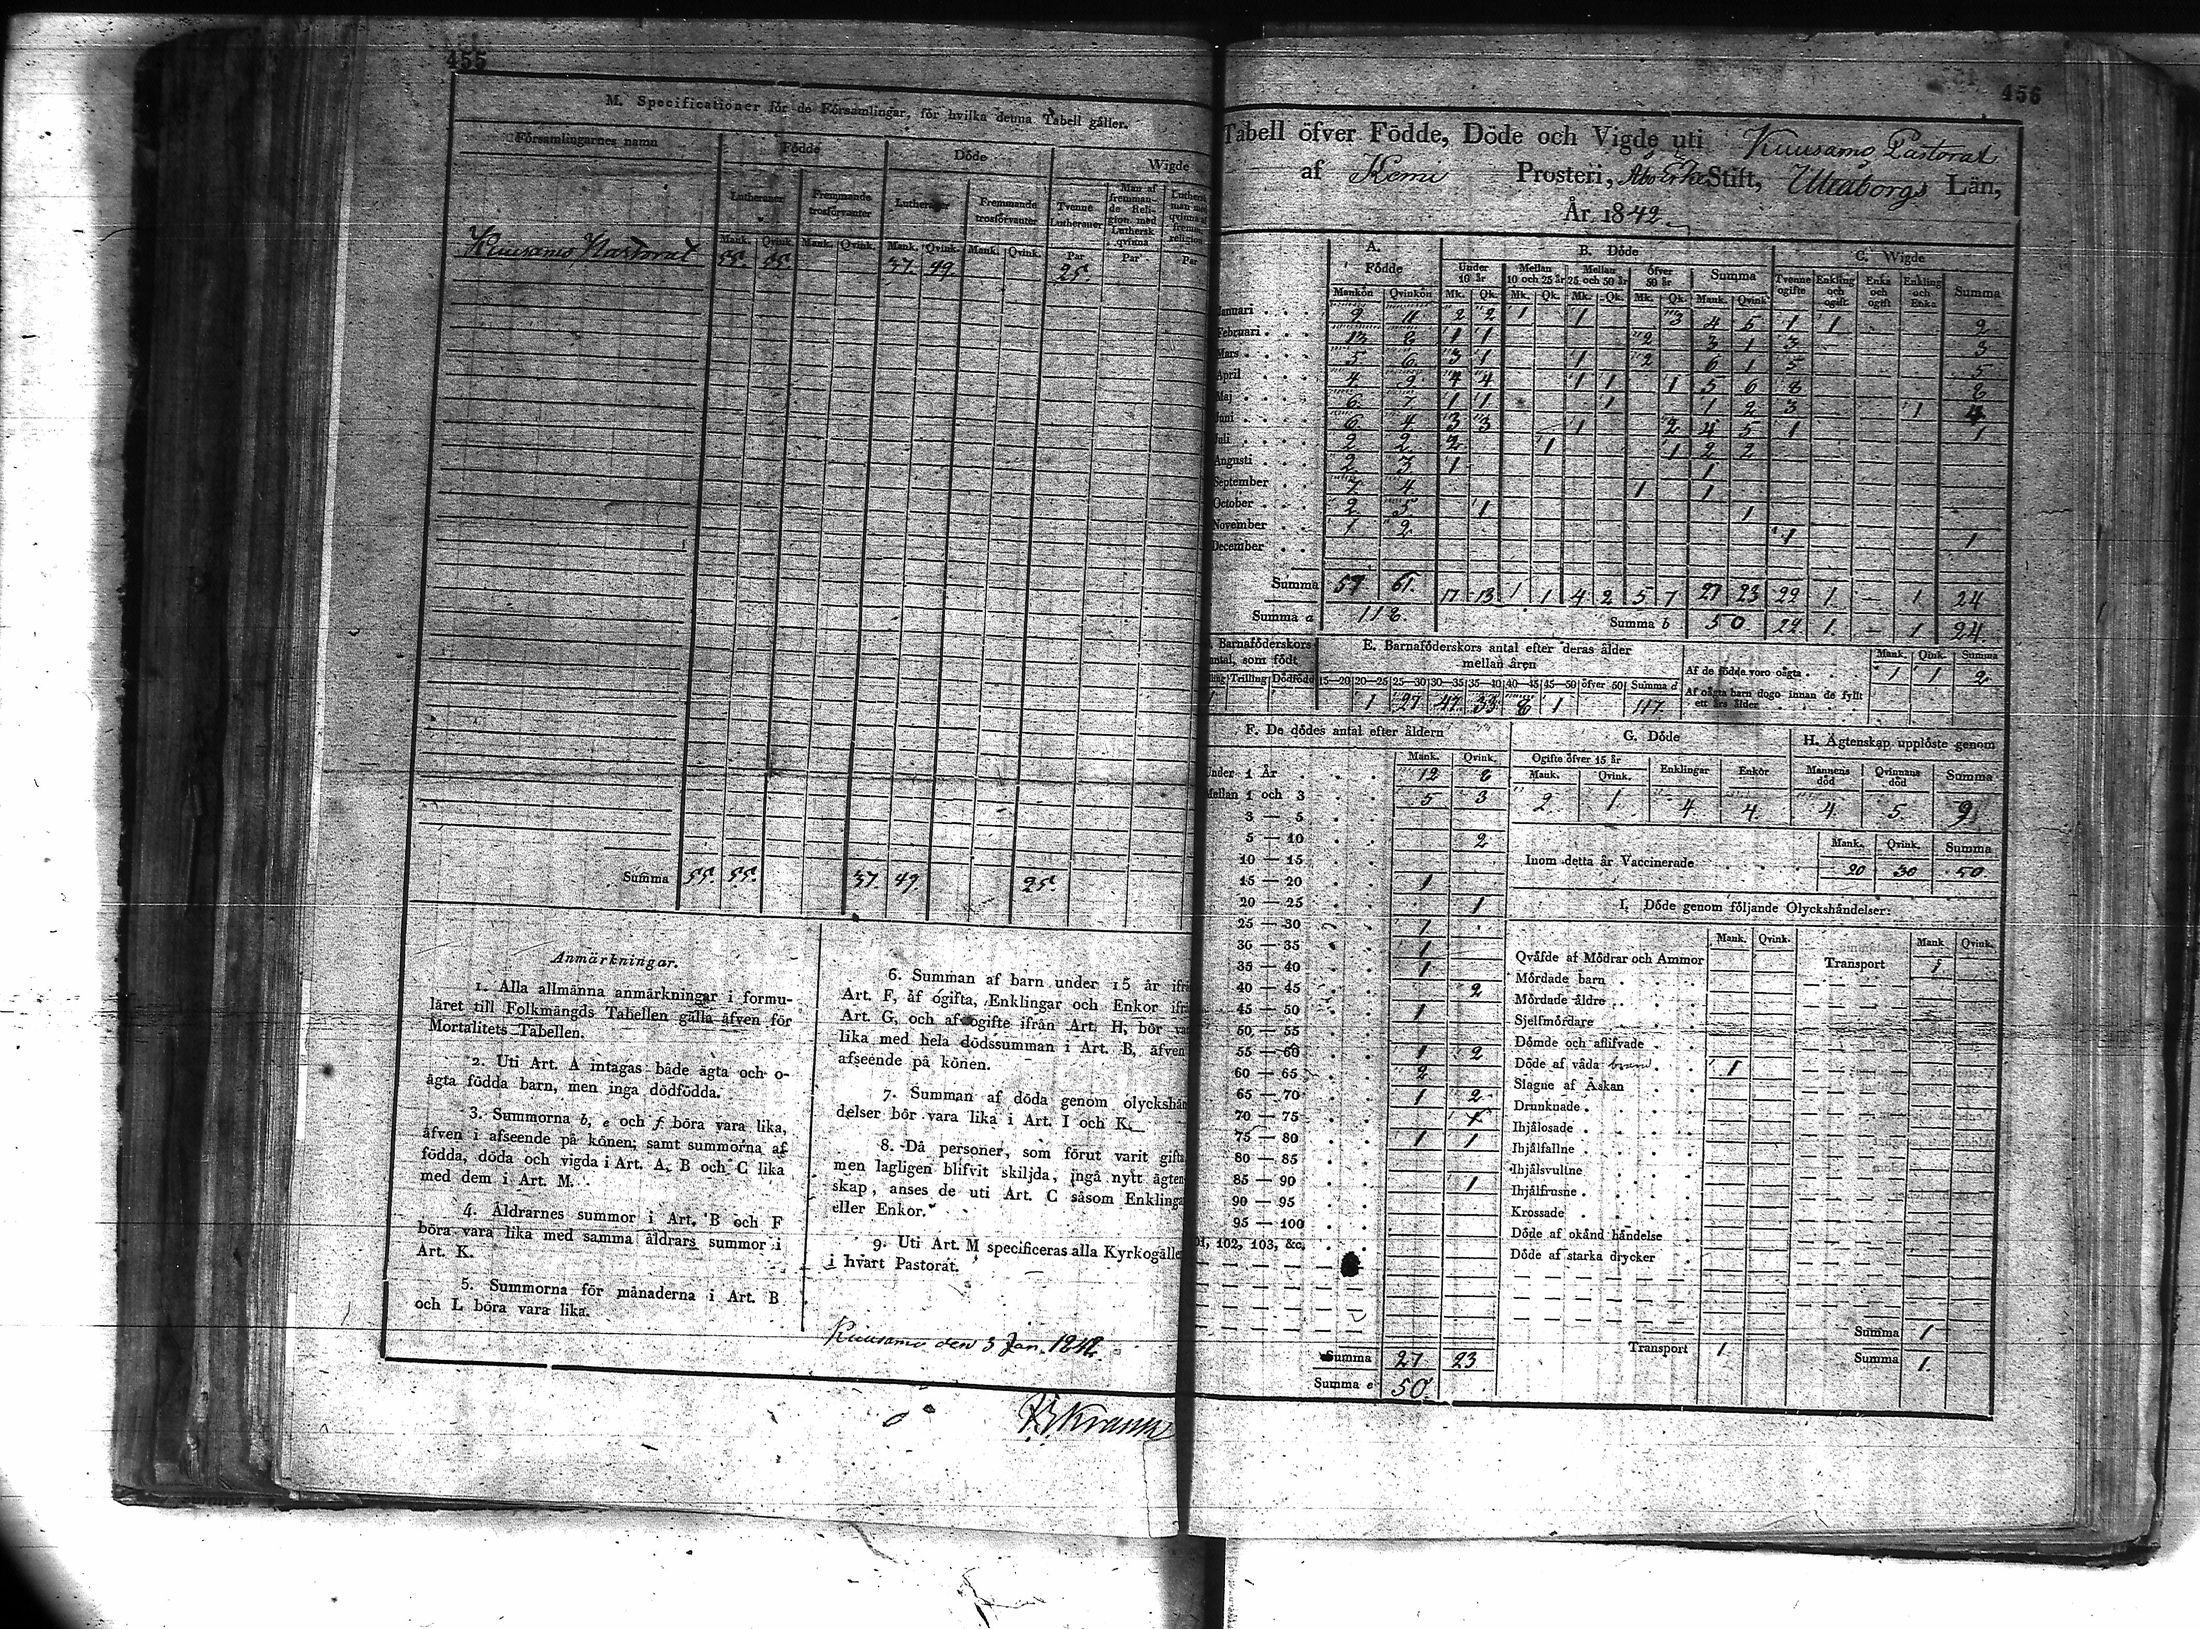 455
M. Specificationer för de Församlingar, för hvilka denna Tabell gäller.
Församlingarnes namn Födde Döde Wigde
Lutheraner Fremmande trosförvanter Lutheraner Fremmande trosförvanter Tvenne Lutheraner Man af fremmande Religion med Luthersk qvinna
Mank. Qvink. Mank. Qvink. Mank. Qvink. Mank. Qvink. Par Par Par
Kuusamo Pastorat 55. 55. 37. 49. 25.
Summa 55. 55. 37. 49. 25
Anmärkningar.
1. Alla allmänna anmärkningar i formu-
läret till Folkmängds Tabellen gälla äfven för
Mortalitets Tabellen.
2. Uti Art. A intagas både ägta och o-
ägta födda barn, men inga dödfödda.
3. Summorna b, e och f böra vara lika,
äfven i afseende på könen; samt summorna af
födda, döda och vigda i Art. A, B och C lika
med dem i Art. M.
4. Åldrarnes summor i Art. B och F
böra vara lika med samma åldrars summor i
Art. K.
5. Summorna för månaderna i Art. B
och L böra vara lika.
6. Summan af barn under 15 år ifrå
Art. F, af ogifta, Enklingar och Enkor ifrå
Art. G, och af ogifte ifrån Art. H, bör var
lika med hela dödssumman i Art. B, äfven
afseende på könen.
7. Summan af döda genom olyckshän
delser bör vara lika i Art. I och K.
8. Då personer, som förut varit gifta
men lagligen blifvit skiljda, ingå nytt ägten
skap, anses de uti Art. C såsom Enklinga
eller Enkor.
9. Uti Art. M specificeras alla Kyrkogälle
i hvart Pastorat.
Kuusamo den 3 Jan. 1842
456
Tabell öfver Födde, Döde och Vigde uti Kuusamo Pastorat
af Kemi Prosteri, Åbo Erke Stift, Uleåborgs Län,
År 1842.
A. Födde B. Döde C. Wigde
Under 10 år Mellan 10 och 25 år Mellan 25 och 50 år Öfver 50 år Summa Tvenne ogifte Enkling och ogift Enka och ogift Enkling och Enka Summa
Mankön Qvinkön Mk. Qk. Mk. Qk. Mk. Qk. Mk. Qk. Mank. Qvink.
Januari 9 11 2 2 1 1 3 4 5 1 1 2
Februari 13 8 1 1 2 3 1 3 3
Mars 5 6 3 1 1 2 6 1 5 5
April 4 9 4 4 1 1 1 5 6 8 8
Maj 6 7 1 1 1 1 2 3 1 4
Juni 6 4 3 3 1 2 4 5 1 1
Juli 2 2 2 1 1 2 2
Augusti 2 3 1 1
September 7 4 1 1
October 2 5 1 1
November 1 2 1 1
December
Summa 57 61. 17 13 1 1 4 2 5 7 27 23 22 1 — 1 24
Summa a 118. Summa b 50 22 1. — 1 24.
Barnaföderskors antal, som födt
Trilling Dödfödde
E. Barnaföderskors antal efter deras ålder
mellan åren
15—20 20—25 25—30 30—35 35—40 40—45 45—50 öfver 50 Summa d
1 27 47 33 8 1 117.
Mank. Qink. Summa
Af de födde voro oägta 1 1 2
Af oägta barn dogo innan de fyllt
ett års ålder
F. De dödes antal efter åldern
Mank. Qvink.
Under 1 År 12 8
Mellan 1 och 3 5 3
3 — 5
5 — 10 2
10 — 15
15 — 20 1
20 — 25 1
25 — 30 1
30 — 35 1
35 — 40 1
40 — 45 2
45 — 50 1
50 — 55
55 — 60 1 2
60 — 65 2
65 — 70 1 2
70 — 75 1
75 — 80 1 1
80 — 85
85 — 90 1
90 — 95
95 — 100
01, 102, 103, &c.
Summa 27 23
Summa e 50.
G. Döde
Ogifte öfver 15 år Enklingar Enkor
Mank. Qvink.
2 1 4. 4.
H. Ägtenskap upplöste genom
Mannens död Qvinnans död Summa
4. 5. 9
Mank. Qvink. Summa
Inom detta år Vaccinerade 20 30 50
I. Döde genom följande Olyckshändelser:
Mank. Qvink. Mank Qvink.
Qväfde af Mödrar och Ammor Transport 1
Mördade barn
Mördade äldre
Sjelfmördare
Dömde och aflifvade
Döde af våda brand 1
Slagne af Åskan
Drunknade
Ihjälosade
Ihjälfallne
Ihjälsvultne
Ihjälfrusne
Krossade
Döde af okänd händelse
Döde af starka drycker
Summa 1
Transport 1 Summa 1.